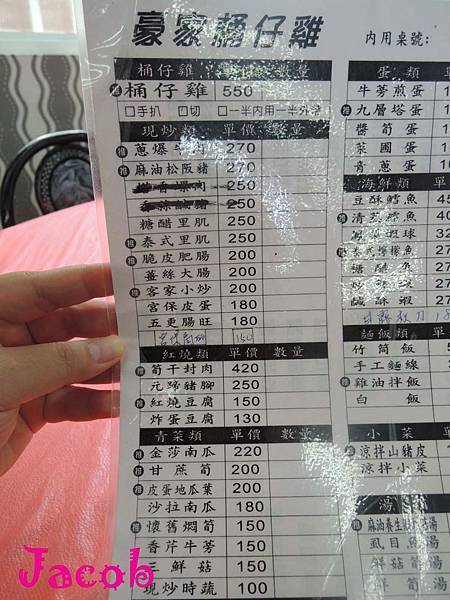 豪家桶仔雞
內用桌號:
桶仔雞 數量
推 桶仔雞 550
□手扒 □切 □一半內用一半外
現炒類 單價 數量
推 蔥爆牛 270
推 麻油松阪豬 270
250
250
糖醋里肌 250
推 泰式里肌 250
推 脆皮肥腸 200
薑絲大腸 200
推 客家小炒 200
宮保皮蛋 180
五更腸旺 180
150
紅燒類 單價 數量
推 筍干封肉 420
元蹄豬腳 250
推 紅燒豆腐 150
炸蛋豆腐 130
青菜類 單價 數量
推 金莎南瓜 220
推 甘蔗筍 200
推 皮蛋地瓜葉 200
沙拉南瓜 180
推 懷舊燜筍 150
香芹牛蒡 150
三鮮菇 150
現炒時蔬 100
蛋類
牛蒡煎蛋
推 九層塔蛋
醬筍蛋
菜圃蛋
青蔥蛋
海鮮類 單
豆酥鱈魚
推 清蒸鱈魚
球
推 泰式檸檬魚
糖醋魚
鹹酥蝦
麵飯類
竹筒飯
手工麵線
推 雞油拌飯
白飯
小菜
推 涼拌山豬皮
涼拌小菜
湯
推 麻油養生 湯
虱目 湯
鮮菇 湯
鮮筍湯
Jacob